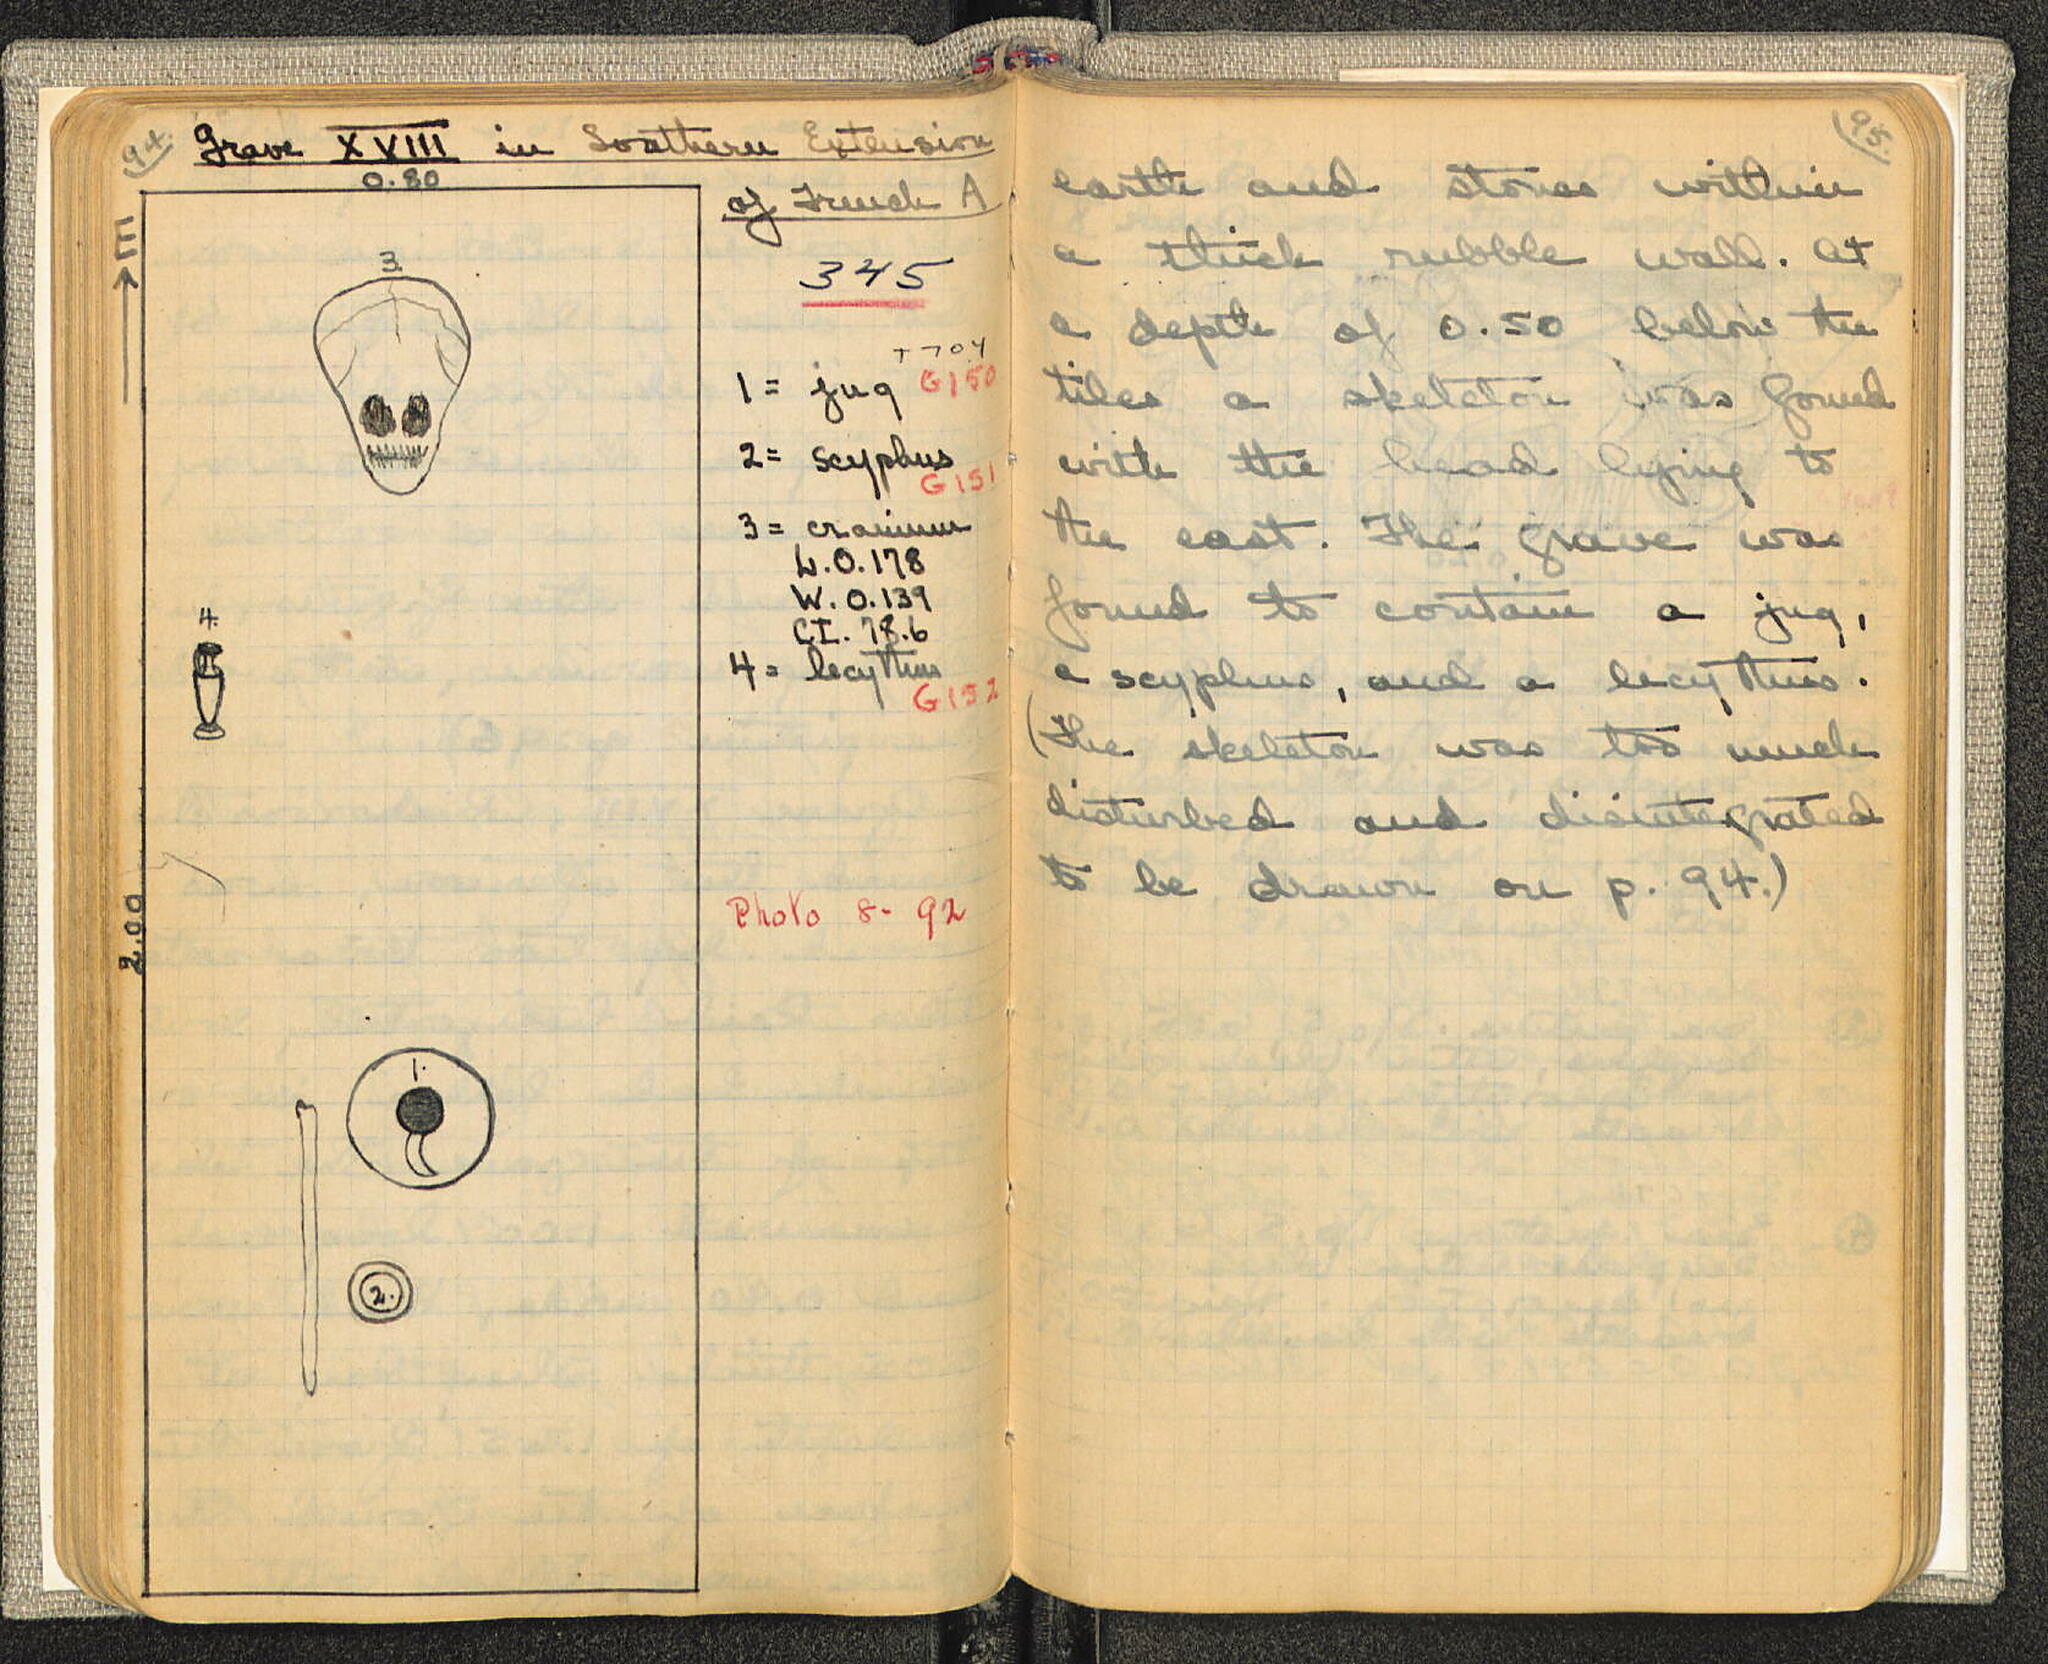 94.
Grave XVIII in Southern Extension
of Trench A
0.80
E
3.
345
T 704
1 = jug G150
2 = scyphus
G151
3 = cranium
L. 0.178
W. 0.139
C.I. 78.6
4 = lecythus
G152
4.
2.00
Photo 8-92
1.
2.
95.
earth and stones within
a thick rubble wall. At
a depth of 0.50 below the
tiles a skeleton was found
with the head lying to
the east. The grave was
found to contain a jug,
a scyphus, and a lecythus.
(The skeleton was too much
disturbed and disintegrated
to be drawn on p. 94.)